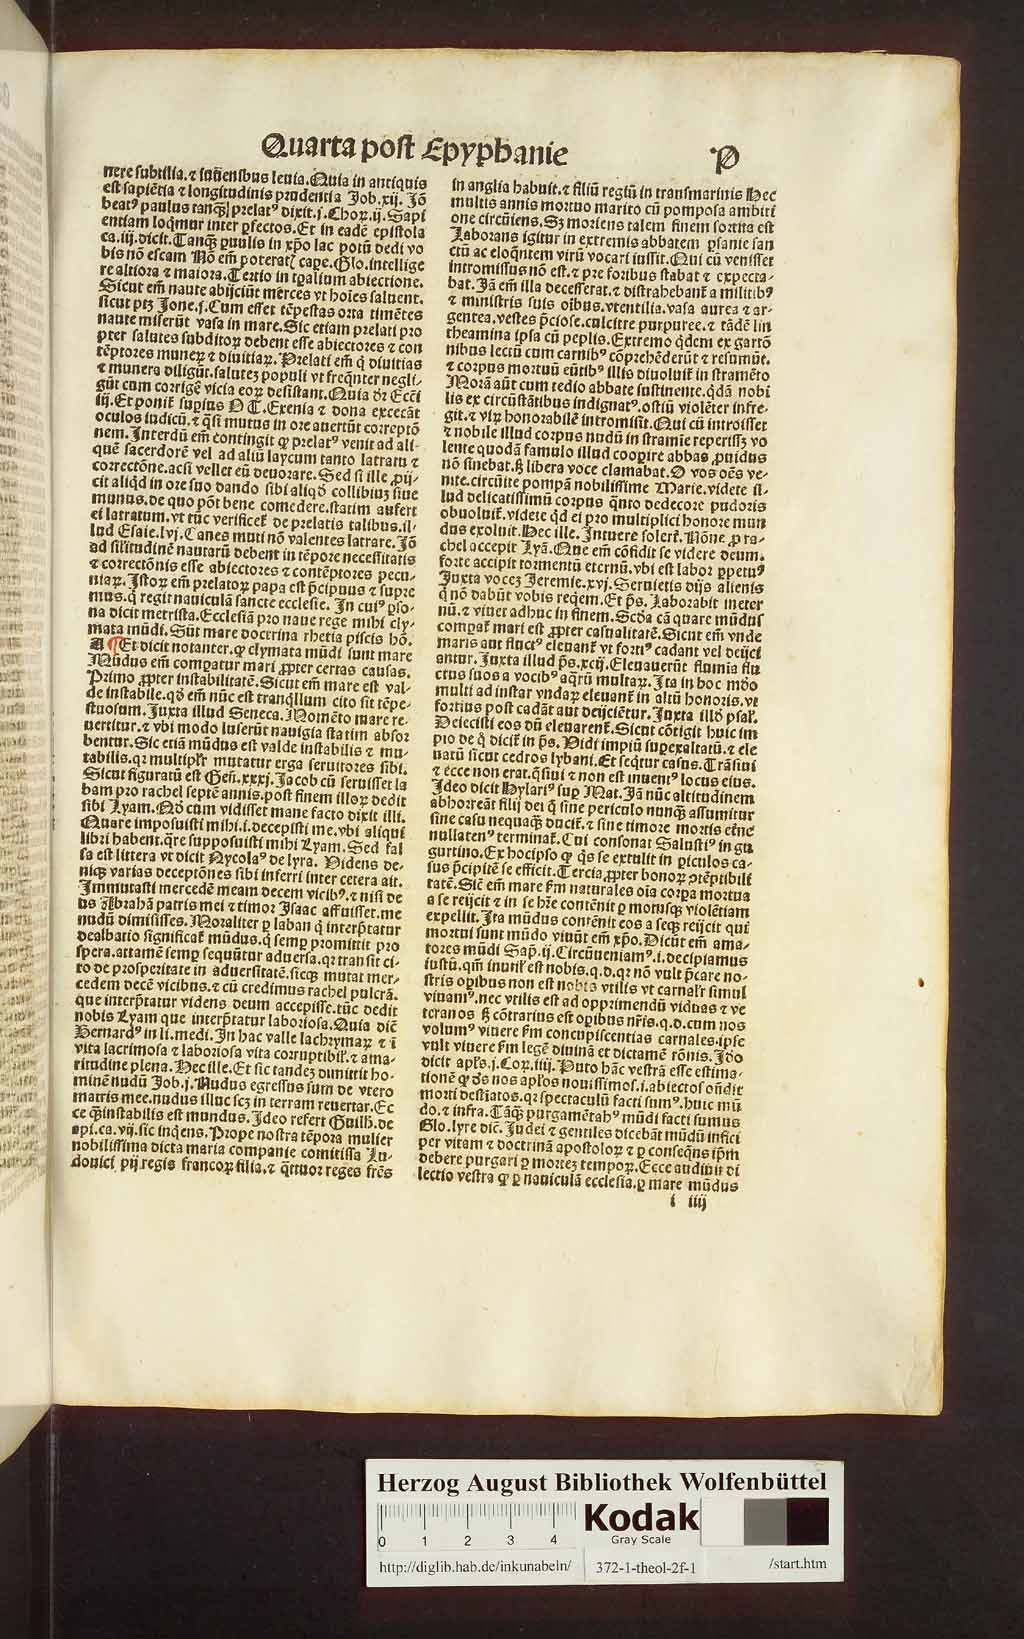 Quarta post Epyphanie
P
nere subtilia.⁊ iuuēnsibus leuia.Quia in antiquis
est sapiētia ⁊ longitudinis prudentia Job.xij. Jō
beatꝰ paulus tanqꝫ prelatꝰ dixit.j.Choꝝ.ij. Sapi
entiam loqmur inter ꝑfectos.Et in eadē epistola
ca.iij.dicit.Tanqꝫ ꝑuulis in xp̄o lac potū dedi vo
bis nō escam Nō em̄ poteratꝭ cape.Glo.intellige
re altiora ⁊ maiora.Tertio in tp̄alium abiectione.
Sicut em̄ naute abijciūt mērces vt hoīes saluent.
sicut ptꝫ Jone.j.Cum esset tēpestas orta timētes
naute miserūt vasa in mare.Sic etiam prelati pro
pter salutes subditoꝝ debent esse abiectores ⁊ con
tēptores muneꝝ ⁊ diuitiaꝝ.Prelati em̄ q̄ diuitias
⁊ munera diligūt.salutez populi vt freqn̄ter negli/
gūt cum corrigē vicia eoꝝ desistant.Quia dꝛ Ecci
iij.Et ponit᷑ supius N T.Exenia ⁊ dona excecāt
oculos iudicū.⁊ q̄si mutus in ore auertūt correptō
nem. Interdū em̄ contingit ꝙ prelatꝰ venit ad ali-
quē sacerdotē vel ad aliū laycum tanto latratu ⁊
correctōne.acsi vellet eū deuorare.Sed si ille ꝓij-
cit aliqd in ore suo dando sibi aliqd̄ collibiuꝫ siue
munus.de quo pōt bene comedere.statim aufert
ei latratum.vt tūc verificet᷑ de prelatis talibus.il-
lud Esaie.lvj.Canes muti nō valentes latrare. Jō
ad sil̓itudinē nautarū debent in tēpore necessitatis
⁊ correctōnis esse abiectores ⁊ contēptores pecu-
niaꝝ.Istoꝝ em̄ prelatoꝝ papa est p̄cipuus ⁊ supre
mus.q̄ regit nauiculā sancte ecclesie. In cuiꝰ ꝑso-
na dicit metrista.Ecclesiā pro naue rege mihi cly-
mata mūdi.Sūt mare doctrina rhetia piscis hō.
A ¶ Et dicit notanter.ꝙ clymata mūdi sunt mare
Mūdus em̄ compatur mari ꝓpter certas causas.
Primo ꝓpter instabilitatē.Sicut em̄ mare est val-
de instabile.qd̄ em̄ nūc est tranqllum cito fit tēpe-
stuosum. Juxta illud Seneca. Momēto mare re-
uertitur.⁊ vbi modo luserūt nauigia statim absor
bentur.Sic etiā mūdus est valde instabilis ⁊ mu-
tabilis.qꝛ multiplr̄ mutatur erga seruitores sibi.
Sicut figuratū est Gen̄.xxxj.Jacob cū seruisset la
bam pro rachel septē annis.post finem illoꝝ dedit
sibi Lyam. Qd̄ cum vidisset mane facto dixit illi.
Quare imposuisti mihi.i.decepisti me.vbi aliqui
libri habent.q̄re supposuisti mihi Lyam. Sed fal
sa est littera vt dicit Nycolaꝰ de lyra. Videns de-
niqꝫ varias deceptōnes sibi inferri inter cetera ait.
Immutasti mercedē meam decem vicibꝰ.⁊ nisi de
us Abrahā patris mei ⁊ timor Isaac affuisset.me
nudū dimisisses. Moraliter ꝑ laban q̄ interp̄tatur
dealbatio significat᷑ mūdus.q̄ semꝑ promittit pro
spera.attamē semꝑ sequūtur aduersa.qꝛ transit ci-
to de prosperitate in aduersitatē.sicqꝫ mutat mer-
cedem decē vicibus.⁊ cū credimus rachel pulcrā.
que interp̄tatur videns deum accepisse.tūc dedit
nobis Lyam que interp̄tatur laboriosa.Quia dic̄
Bernardꝰ in li.medi.In hac valle lachrymaꝝ ⁊ ī
vita lacrimosa ⁊ laboriosa vita corruptibil̓.⁊ ama-
ritudine plena.Hec ille.Et sic tandeꝫ dimittit ho-
minē nudū Job.j.Nudus egressus sum de vtero
matris mee.nudus illuc scꝫ in terram reuertar.Ec
ce q̄ instabilis est mundus. Ideo refert Guilh̄.de
api.ca.vij.sic inq̄ens.Prope nostra tēpora mulier
nobilissima dicta maria companie comitissa Lu-
douici pij regis francoꝝ filia.⁊ q̄ttuor reges fres̄
in anglia habuit.⁊ filiū regiū in transmarinis Hec
multis annis mortuo marito cū pomposa ambiti
one circūiens.Sꝫ moriens talem finem sortita est
Laborans igitur in extremis abbatem ꝑsanie san
ctū ac eloq̄ntem virū vocari iussit.Qui cū venisset
intromissus nō est.⁊ pre foribus stabat ⁊ expecta-
bat.Jā em̄ illa decesserat.⁊ distrahebant᷑ a militibꝰ
⁊ ministris suis oībus.vtentilia.vasa aurea ⁊ ar-
gentea.vestes p̄ciose.culcitre purpuree.⁊ tādē lin
theamina ipsa cū peplis.Extremo q̄dem ex gartō
nibus lectū cum carnibꝰ cōprehēderūt ⁊ resumūt.
⁊ corpus mortuū eūtibꝰ illis diuoluit᷑ in stramēto
Morā aūt cum tedio abbate sustinente.q̄dā nobi
lis ex circūstātibus indignatꝰ.ostiū violēter infre-
git.⁊ viꝝ honorabilē intromisit.Qui cū introisset
⁊ nobile illud corpus nudū in stramīe reperissꝫ vo
lente quodā famulo illud cooꝑire abbas ꝓuidus
nō sinebat.sꝫ libera voce clamabat.O vos oēs ve-
nite.circūite pompā nobilissime Marie.videte il-
lud delicatissimū corpus q̄nto dedecore pudoris
obuoluit᷑.videte qd̄ ei pro multiplici honore mun
dus exoluit.Hec ille. Intuere solert᷑.Nōne ꝓ ra-
chel accepit Lyā.Que em̄ cōfidit se videre deum.
forte accipit tormentū eternū.vbi est labor ꝑpetuꝰ
Juxta vocez Jeremie.xvj.Seruietis dijs alienis
q̄ nō dabūt vobis reqem.Et ps̄. Laborabit ineter
nū.⁊ viuet adhuc in finem. Scd̄a cā quare mūdus
comꝑat᷑ mari est ꝓpter casualitatē.Sicut em̄ vnde
maris aut fluctꝰ eleuant᷑ vt fortiꝰ cadant vel deijci
antur. Juxta illud ps̄.xcij.Eleuauerūt flumīa flu
ctus suos a vocibꝰ aq̄rū multaꝝ. Ita in hoc mōo
multi ad instar vndaꝝ eleuant᷑ in altū honoris.vt
fortius post cadāt aut deijciētur. Juxta illd̓ psal̓.
Deiecisti eos dū eleuarent᷑.Sicut cōtigit huic im
pio de q̄ dicit᷑ in ps̄. Vidi impiū suꝑexaltatū.⁊ ele
uatū sicut cedros lybani.Et seq̄tur casus.Trāsiui
⁊ ecce non erat.q̄siui ⁊ non est inuentꝰ locus eius.
Ideo dicit Hylariꝰ suꝑ Mat.Jā nūc altitudinem
abhorreāt filij dei q̄ sine periculo nunqꝫ assumitur
sine casu nequaqꝫ ducit᷑.⁊ sine timore mortis etne᷑
nullatenꝰ terminat᷑.Cui consonat Salustiꝰ in gu
gurtino.Ex hocipso ꝙ q̄s se extulit in ꝑiculos ca-
sus p̄cipitē se efficit.Tercia ꝓpter honoꝝ ↄtēptibili
tatē.Sic̄ em̄ mare ſm naturales oīa corꝑa mortua
a se reijcit ⁊ in se hr̄e contēnit ꝑ motusqꝫ violētiam
expellit. Ita mūdus contēnit eos a seqꝫ reijcit qui
mortui sunt mūdo viuūt em̄ xp̄o.Dicūt em̄ ama-
tores mūdi Sap̄.ij.Circūueniamꝰ.i.decipiamus
iustū.qm̄ inutil̓ est nobis.q.d.qꝛ nō vult p̄care no-
stris opibus non est nobis vtilis vt carnal̓r simul
viuamꝰ.nec vtilis est ad opprimendū viduas ⁊ ve
teranos sꝫ cōtrarius est opibus nr̄is.q.d.cum nos
volumꝰ viuere ſm concupiscentias carnales.ipse
vult viuere ſm legē diuinā et dictamē rōnis. Jdo
dicit apl̓s.j.Coꝝ.iiij. Puto hāc vestrā esse estima-
tionē ꝙ ds̄ nos apl̓os nouissimos.i.abiectos on̄dit
morti destīatos.qꝛ spectaculū facti sumꝰ.huic mū
do.⁊ infra.Tāqꝫ purgamētahꝰ mūdi facti sumus
Glo.lyre dic̄. Judei ⁊ gentiles dicebāt mūdū infici
per vitam ⁊ doctrinā apostoloꝝ ⁊ ꝑ conseq̄ns ip̄m
debere purgari ꝑ morteꝫ tempoꝝ.Ecce audiuit di
lectio vestra ꝙ ꝑ nauiculā ecclesia.ꝑ mare mūdus
i iiij
Herzog August Bibliothek Wolfenbüttel
0 1 2 3 4
Kodak
Gray Scale
http://diglib.hab.de/inkunabeln/
372-1-theol-2f-1
/start.htm